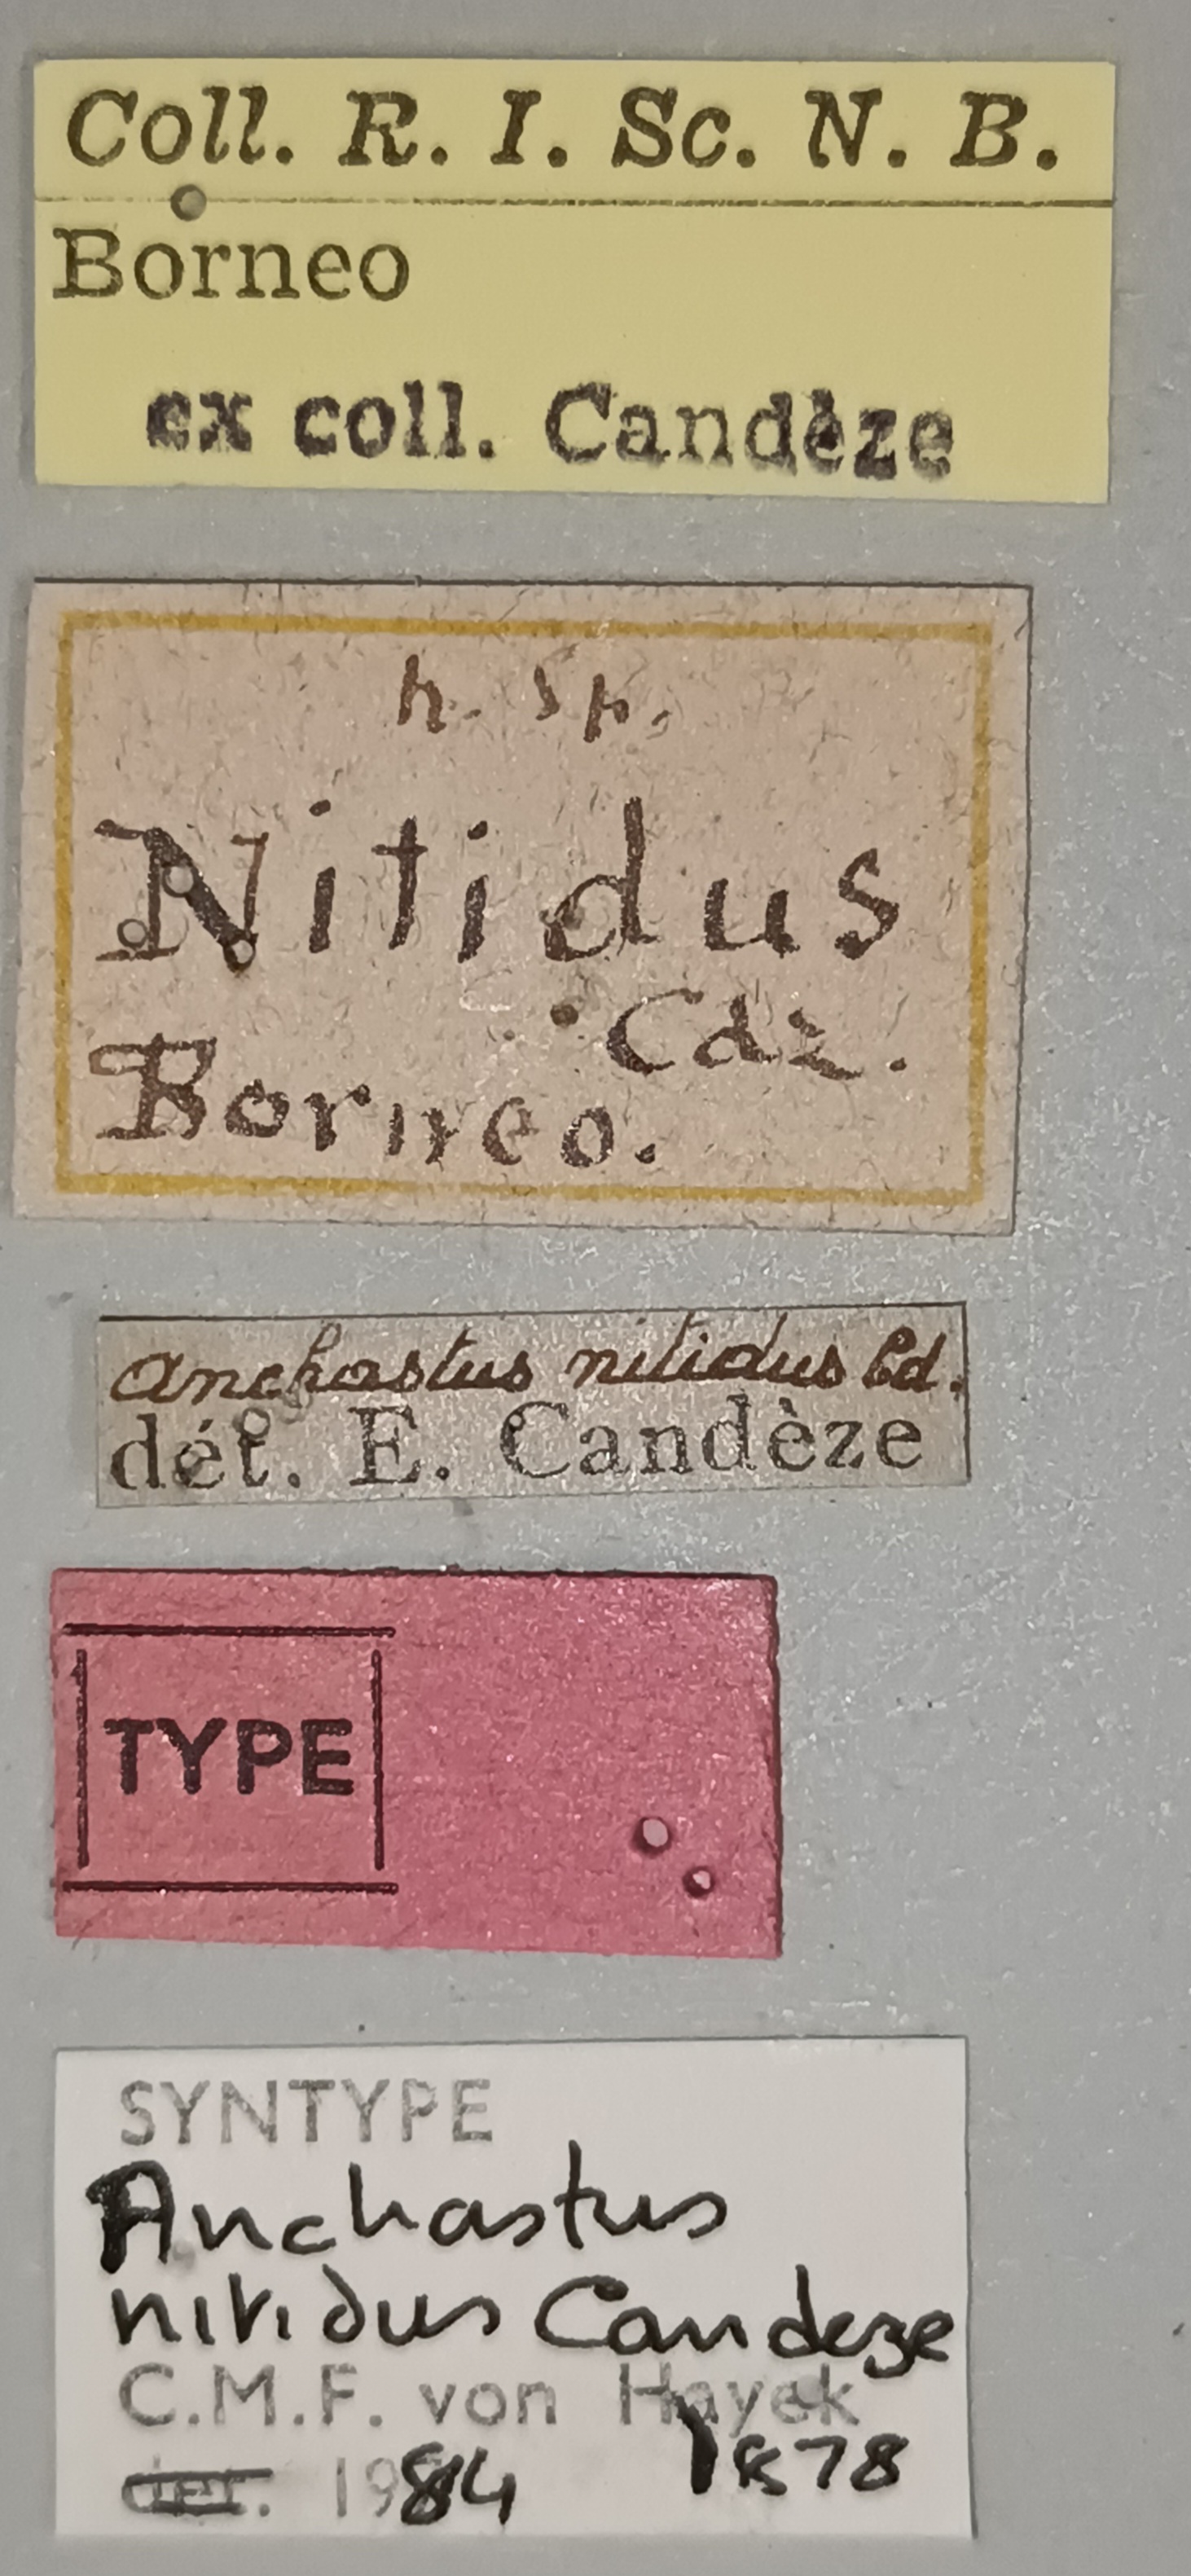 Coll. R. I. Sc. N. B.
Borneo
ex coll. Candèze
n. sp.
Nitidus
Cdz.
Borneo.
Anchastus nitidus Cd.
dét. E. Candèze
TYPE
SYNTYPE
Anchastus
nitidus Candeze
C.M.F. von Hayek
det. 1984 1878